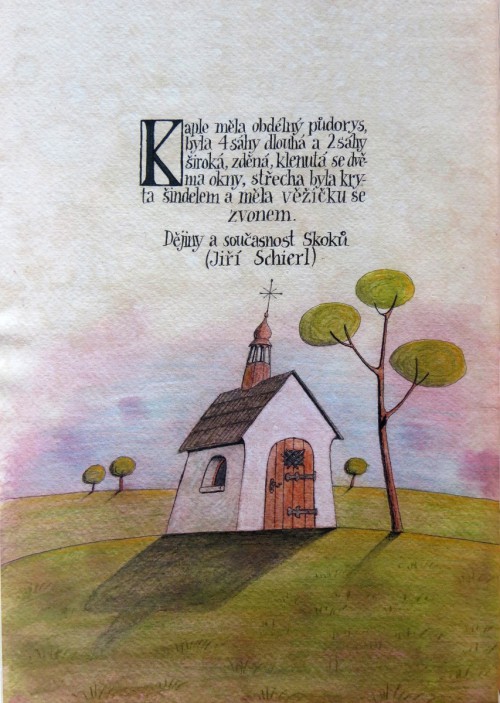 Kaple měla obdélný půdorys,
byla 4 sáhy dlouhá a 2 sáhy
široká, zděná, klenutá se dvě-
ma okny, střecha byla kry-
ta šindelem a měla věžičku se
zvonem.
Dějiny a současnost Skoků
(Jiří Schierl)